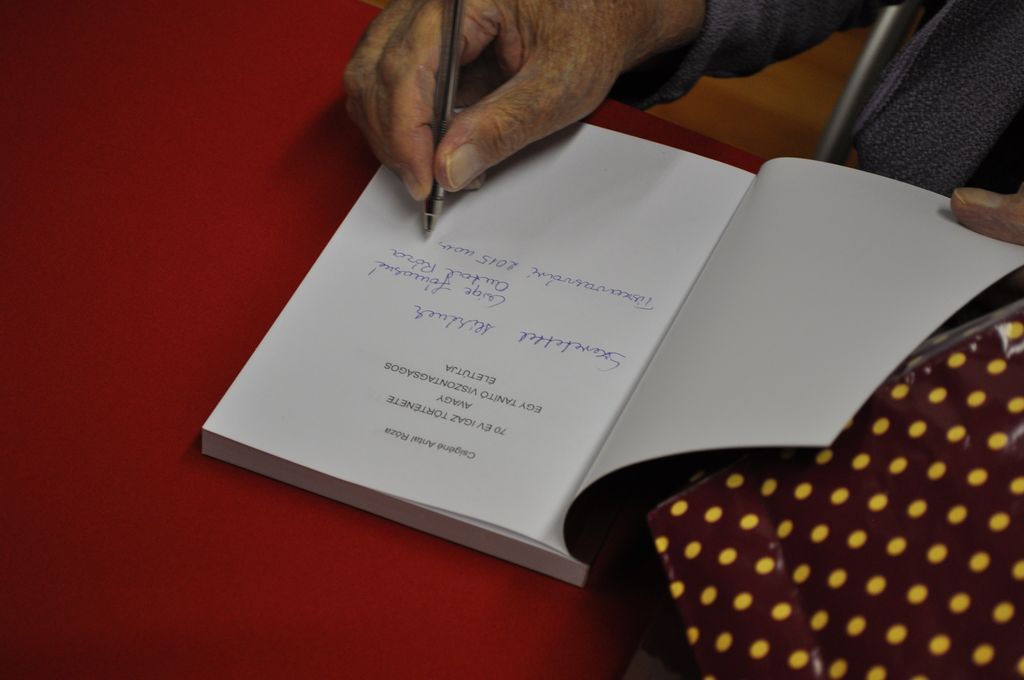 Csigéné Antal Róza
70 ÉV IGAZ TÖRTÉNETE
AVAGY
EGY TANÍTÓ VISZONTAGSÁGOS
ÉLETÚTJA
Szeretettel
Csige
Antal Róza
Tiszavasvári 2015 nov.